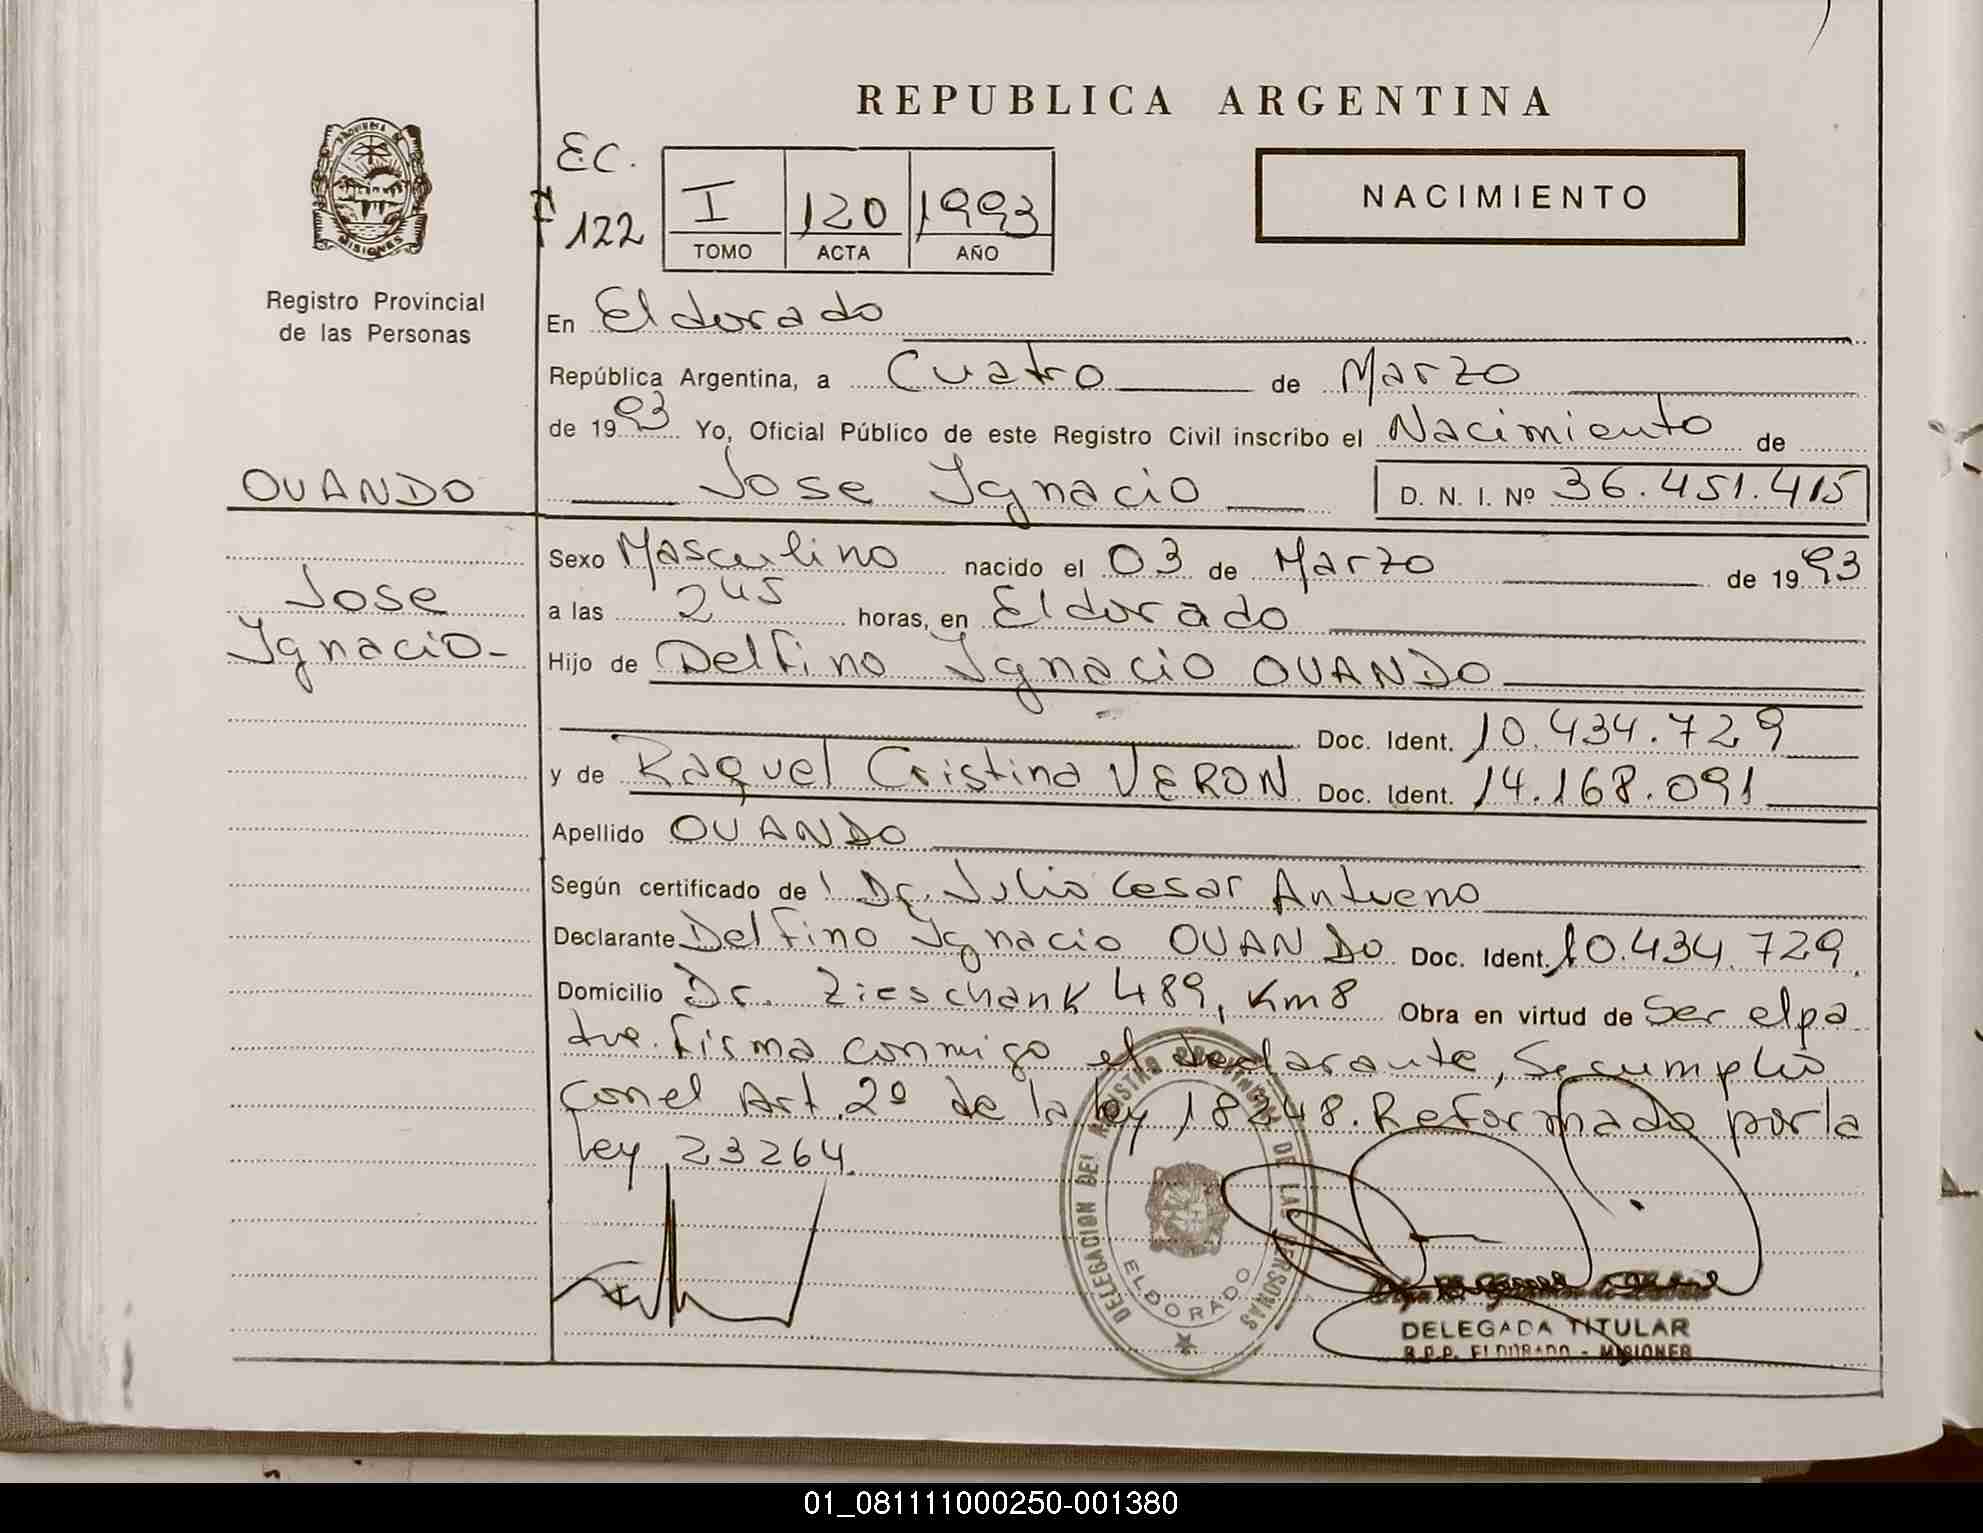 REPUBLICA ARGENTINA
EC.
F 122
I 120 1993
TOMO ACTA AÑO
NACIMIENTO
PROVINCIA DE
MISIONES
Registro Provincial
de las Personas
En Eldorado
República Argentina, a Cuatro de Marzo
de 1993 Yo, Oficial Público de este Registro Civil inscribo el Nacimiento de
OVANDO
Jose Ignacio D. N. I. Nº 36.451.415
Sexo Masculino nacido el 03 de Marzo de 1993
Jose
a las 2 45 horas, en Eldorado
Ignacio-
Hijo de Delfino Ignacio OVANDO
Doc. Ident. 10.434.729
y de Raquel Cristina VERON Doc. Ident. 14.168.091
Apellido OVANDO
Según certificado de Dr. Julio Cesar
Declarante Delfino Ignacio OVANDO Doc. Ident. 10.434.729
Domicilio Dr. Zieschank 489, Km8 Obra en virtud de Ser el pa
dre. firma conmigo el declarante, Se cumplio
con el Art. 2º de la ley 18248. Reformado por la
ley 23264.
DELEGACION DEL REGISTRO PROVINCIAL DE LAS PERSONAS
ELDORADO
DELEGADA TITULAR
R.P.P. ELDORADO - MISIONES
01_081111000250-001380